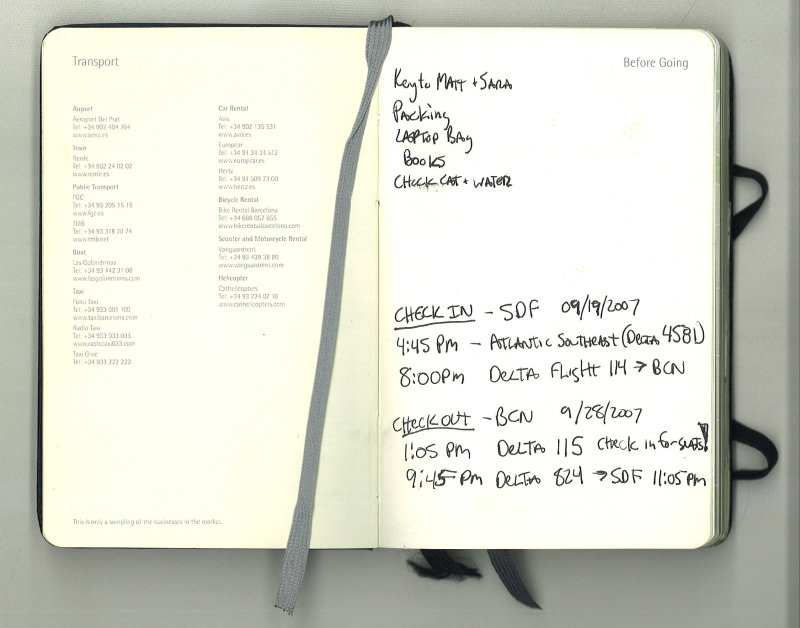 Transport
Airport
Aeroport Del Prat
Tel: +34 902 404 704
www.aena.es
Train
Renfe
Tel: +34 902 24 02 02
www.renfe.es
Public Transport
FGC
Tel: +34 93 205 15 15
www.fgc.es
TMB
Tel: +34 93 318 70 74
www.tmb.net
Boat
Las Golondrinas
Tel: +34 93 442 31 06
www.lasgolondrinas.com
Taxi
Fono Taxi
Tel: +34 933 001 100
www.taxibarcelona.com
Radio Taxi
Tel: +34 933 033 033
www.radiotaxi033.com
Taxi Groc
Tel: +34 933 222 222
Car Rental
Avis
Tel: +34 902 135 531
www.avis.es
Europcar
Tel: +34 91 34 34 512
www.europcar.es
Hertz
Tel: +34 91 509 73 00
www.hertz.es
Bicycle Rental
Bike Rental Barcelona
Tel: +34 666 057 655
www.bikerentalbarcelona.com
Scooter and Motorcycle Rental
Vanguardrent
Tel: +34 93 439 38 80
www.vanguardrent.com
Helicopter
Cathelicopters
Tel: +34 93 224 07 10
www.cathelicopters.com
This is only a sampling of the businesses in the market.
Before Going
Key to MATT + SARA
Packing
LAPTOP BAg
Books
CHECK CAT + WATER
CHECK IN - SDF 09/19/2007
4:45 PM - ATLANTIC SOUTHEAST (DELTA 4581)
8:00PM DELTA FLIGHT 114 → BCN
CHECK OUT - BCN 9/28/2007
1:05 PM DELTA 115 CHECK in for SEATS!
9:45 PM DELTA 824 → SDF 11:05 PM